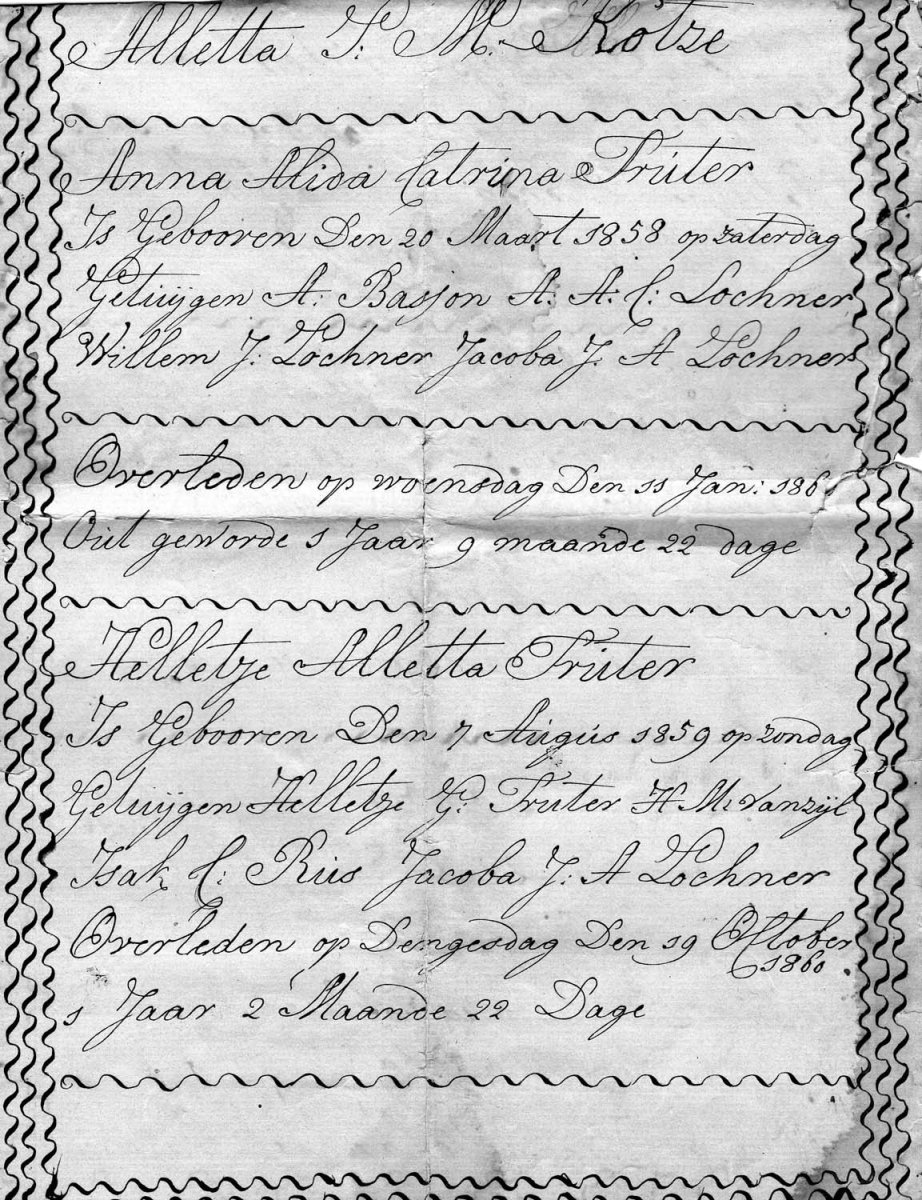 Alletta J. M. Kotze
Anna Alida Catrina Trúter
Is Gebooren Den 20 Maart 1858 op zaterdag
Getuÿgen A: Basjon A: A: C: Lochner
Willem J: Lochner Jacoba J. A Lochner
Overleden op woensdag Den 11 Jan:
Out geworde 1 Jaar 9 maande 22 dage
Helletje Alletta Trúter
Is Gebooren Den 7 Aúgús 1859 op zondag
Getuÿgen Helletze G: Trúter H M: vanzÿl
Isak C: Rús Jacoba J: A Lochner
Overleden op Dengesdag Den 19 October
1860
1 Jaar 2 Maande 22 Dage